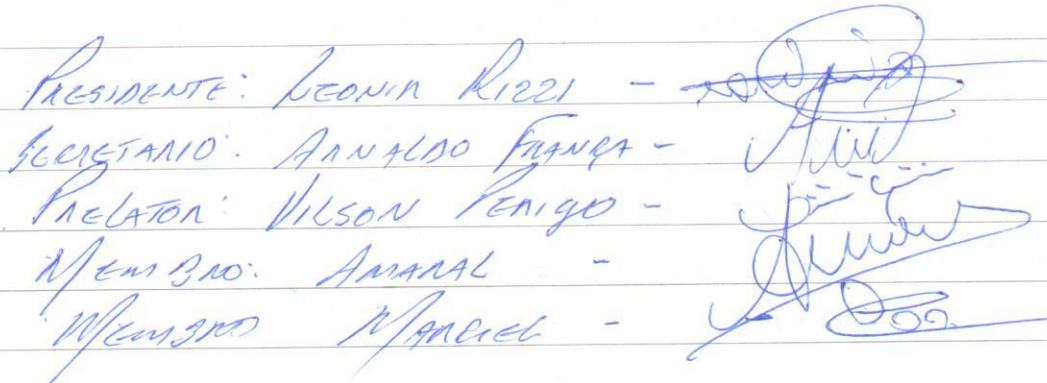 PRESIDENTE: LEONIR RIZZI -
SECRETARIO: ARNALDO FRANÇA -
PRELATOR: VILSON PERIGO -
MEMBRO: AMARAL -
MEMBRO MARCIEL -